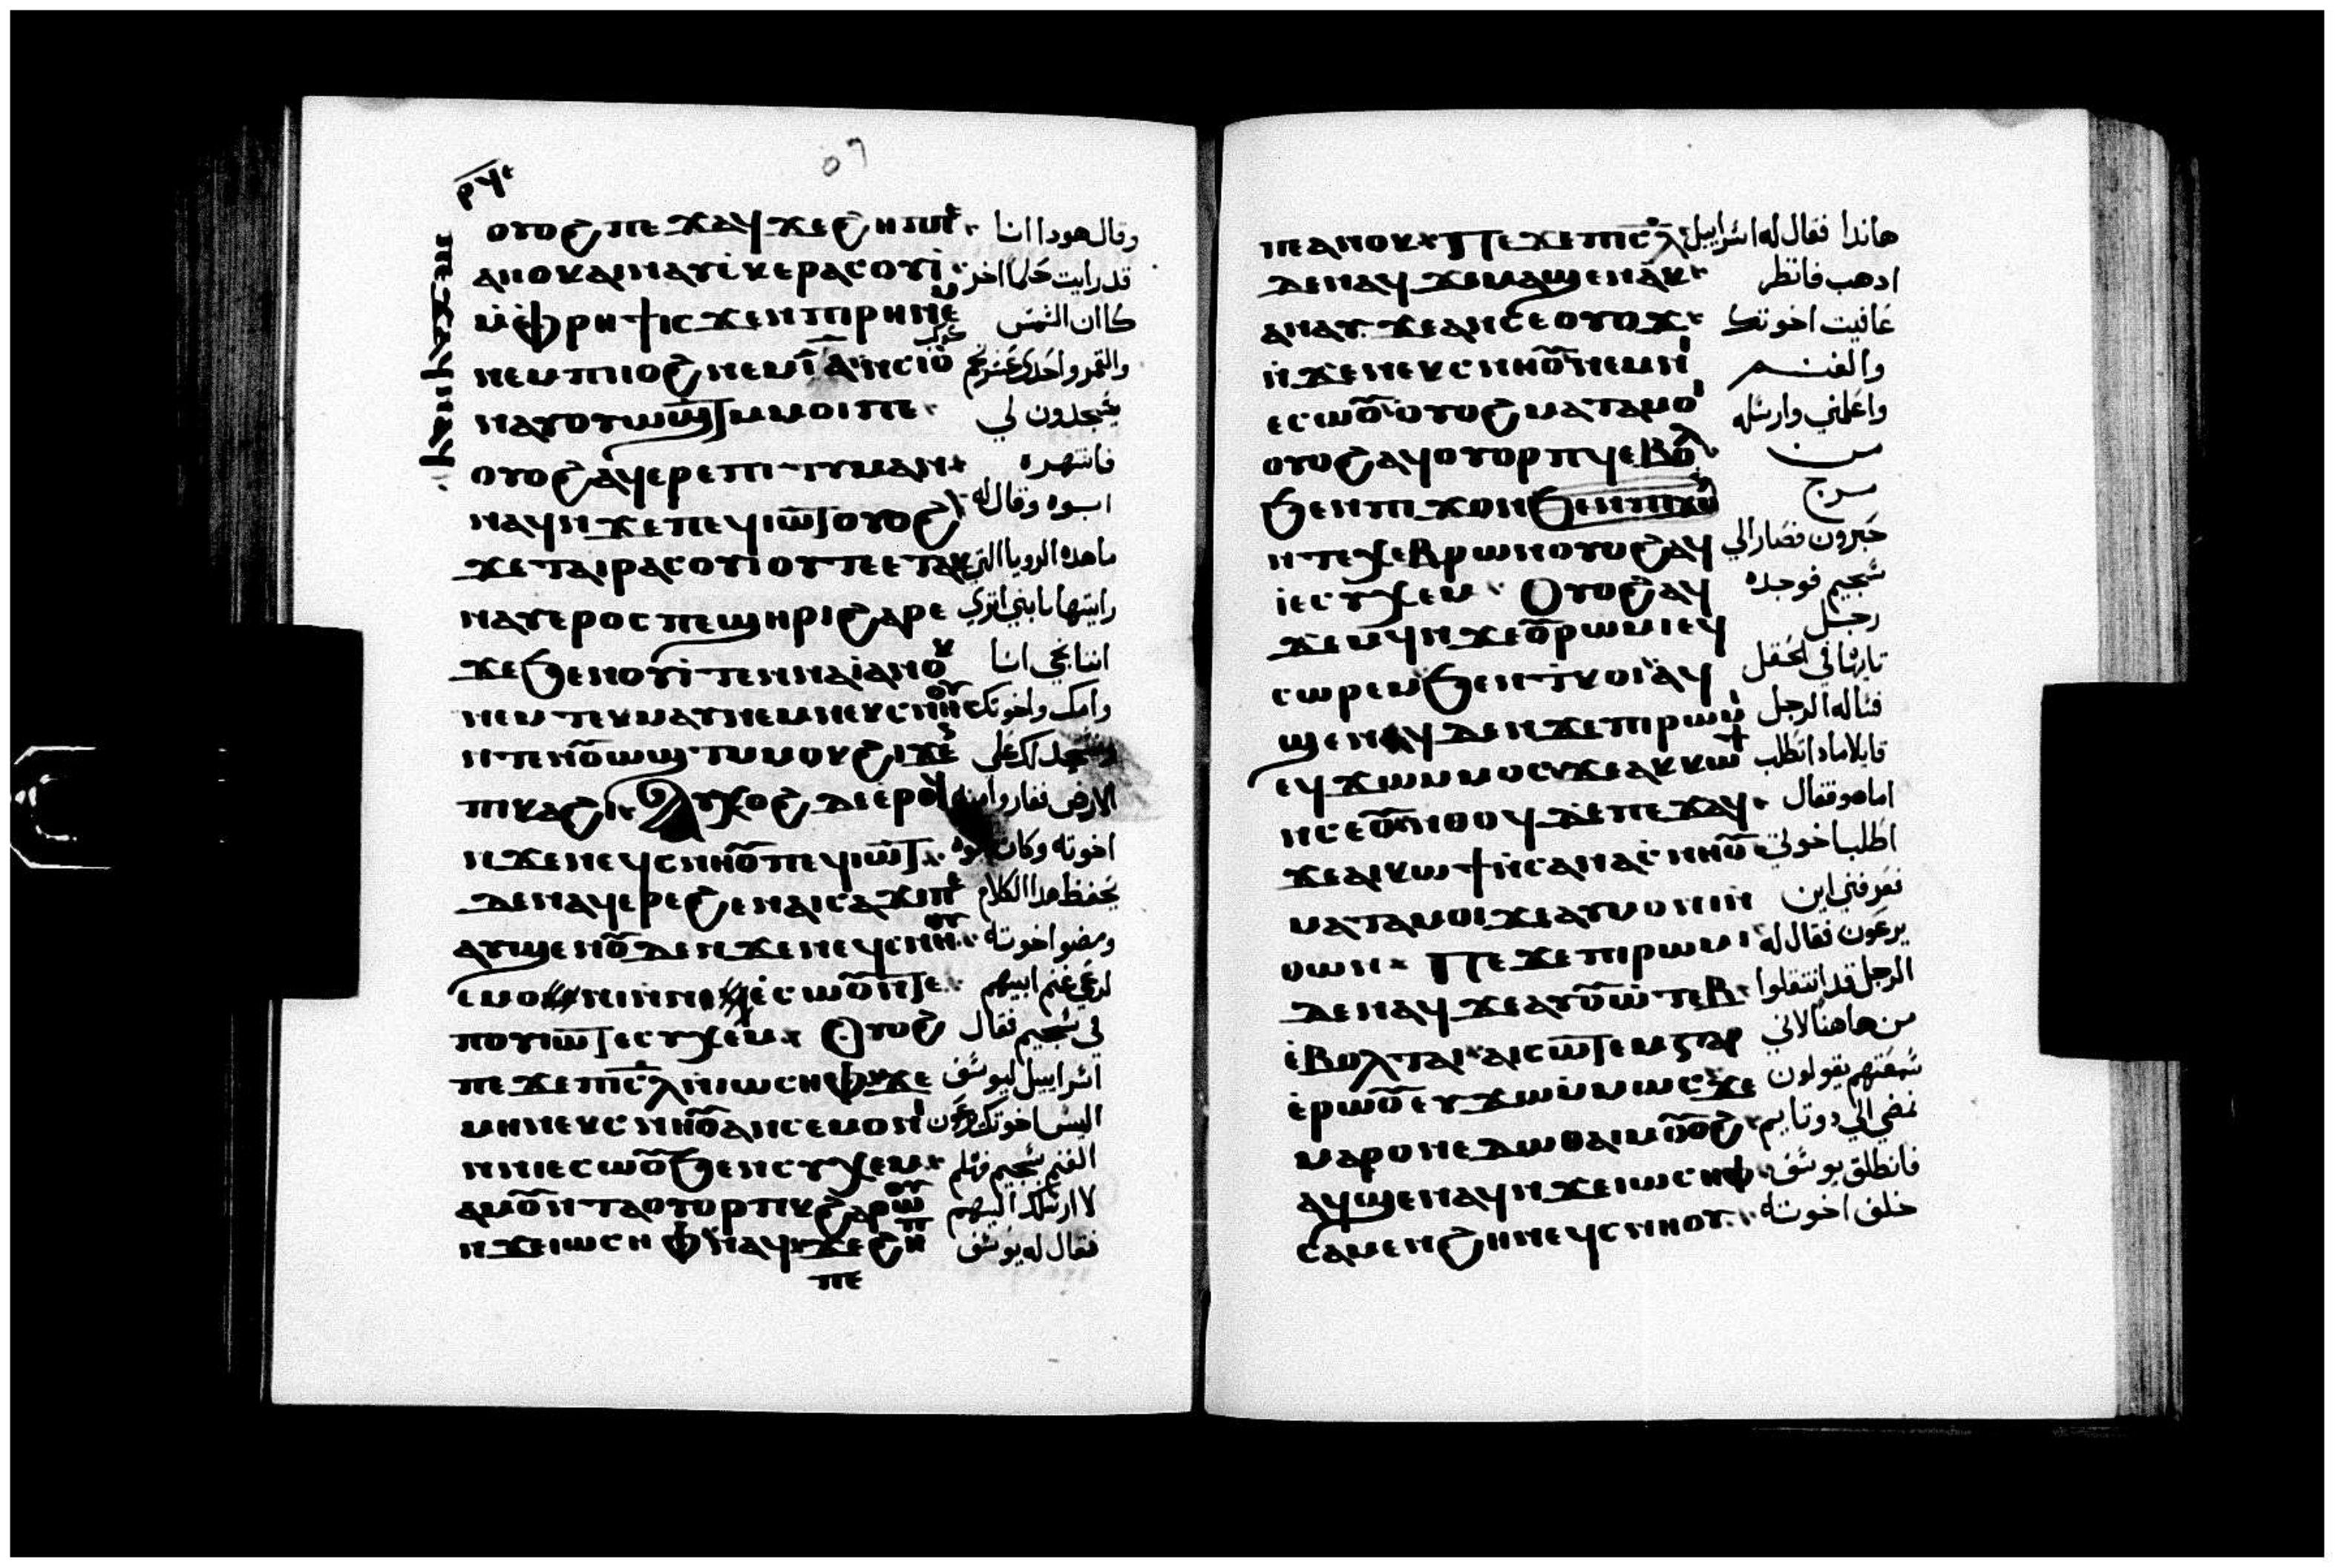 ⲟⲩⲟϩ ⲡⲉϫⲁϥ ϫⲉ ϩⲏⲡⲡⲉ وقال هودا انا
ⲁⲛⲟⲕ ⲁⲓⲛⲁⲩ ⲓ̀ⲕⲉⲣⲁⲥⲟⲩⲓ̀ قد رايت حلما اخر
ⲙ̀ⲫⲣⲏϯ ⲓⲥϫⲉⲛ ⲡⲓⲣⲏ ⲛⲉⲙ كاان الشمس
ⲛⲉⲙ ⲡⲓⲓⲟϩ ⲛⲉⲙ ⲓ̅ⲁ̅ ⲛⲥⲓⲟⲩ والقمر واحدى عشر نجم
ⲛⲁⲩⲟⲩⲱϣⲧ ⲙⲙⲟⲓ ⲡⲉ يسجدون لي
ⲟⲩⲟϩ ⲁϥⲉⲣⲉⲡⲓⲧⲓⲙⲁⲛ فانتهره
ⲛⲁϥ ⲛϫⲉ ⲡⲉϥⲓⲱⲧ ⲟⲩⲟϩ ابوه وقال له
ϫⲉ ⲧⲁⲓⲣⲁⲥⲟⲩⲓ ⲟⲩ ⲡⲉ ⲉⲧⲁⲕ ما هده الرويا التي
ⲛⲁⲩ ⲉⲣⲟⲥ ⲡⲉϣⲏⲣⲓ ϩⲁⲣⲉ رايتها يابني اترى
ϫⲉ ϧⲉⲛ ⲟⲩⲓ̀ ⲧⲉⲛⲛⲁⲓ̀ ⲁⲛⲟⲕ اننا نجي انا
ⲛⲉⲙ ⲧⲉⲕⲙⲁⲩ ⲛⲉⲙ ⲛⲉⲕⲥⲛⲏⲟⲩ وامك واخوتك
ϩⲓϫⲉⲛ ونسجد لك على
ⲡⲓⲕⲁϩⲓ ⲁⲩⲭⲟϩ ⲇⲉ ⲉ̀ⲣⲟϥ الارض فغاروا منه
ⲛϫⲉ ⲛⲉϥⲥⲛⲏⲟⲩ ⲡⲉϥⲓⲱⲧ اخوته وكان ابوه
ⲇⲉ ⲛⲁϥⲉⲣⲉϩ ⲉⲛⲁⲓⲥⲁϫⲓ ⲡⲉ يحفظ هدا الكلام
ⲁⲩϣⲉⲛⲱⲟⲩ ⲇⲉ ⲛϫⲉ ⲛⲉϥⲥⲛⲏⲟⲩ ومضوا اخوته
ⲉ̀ⲥⲱⲟⲩ ⲛⲧⲉ لرعي غنم ابيهم
ⲡⲟⲩⲓⲱⲧ ⲉⲥⲩⲭⲉⲙ ⲟⲩⲟϩ في سجيم فقال
ⲡⲉϫⲉ ⲡⲓⲥ̅ⲗ̅ ⲛⲓⲱⲥⲏⲫ ϫⲉ اسراييل ليوسف
ⲙⲏ ⲛⲉⲕⲥⲛⲏⲟⲩ ⲁⲛ ⲥⲉⲙⲟⲛⲓ اليس اخوتك يرعون
ⲛⲛⲓⲉⲥⲱⲟⲩ ϧⲉⲛ ⲥⲩⲭⲉⲙ الغنم سجيم فهلم
ⲁⲙⲟⲩ ⲛⲧⲁⲟⲩⲟⲣⲡⲕ ϩⲁⲣⲱⲟⲩ لا ارسلك اليهم
ⲛϫⲉ ⲓⲱⲥⲏⲫ ⲛⲁϥ ϫⲉ ϩⲏⲡ فقال له يوسف
ⲡⲉ
ⲡⲉ ⲁⲛⲟⲕ ⲡⲉϫⲉ ⲡⲓⲥ̅ⲗ̅ هاندا فقال له اسراييل
ⲇⲉ ⲛⲁϥ ϫⲉ ⲙⲁϣⲉⲛⲁⲕ ادهب فانظر
ⲁⲛⲁⲩ ϫⲉ ⲁⲛ ⲥⲉⲟⲩⲟϫ عافيت اخوتك
ⲛ̀ϫⲉ ⲛⲉⲕⲥⲛⲏⲟⲩ ⲛⲉⲙ ⲛⲓ والغنم
ⲉⲥⲱⲟⲩ ⲟⲩⲟϩ ⲙⲁⲧⲁⲙⲟⲓ واعلمني وارسله
ⲟⲩⲟϩ ⲁϥⲟⲩⲟⲣⲡϥ ⲉⲃⲟⲗ من
ϧⲉⲛ ϯϫⲟⲓ مرج
ⲛⲧⲉ ⲭⲉⲃⲣⲱⲛ ⲟⲩⲟϩ ⲁϥ حبرون فصار الي
ⲓ̀ ⲉⲥⲩⲭⲉⲙ ⲟⲩⲟϩ ⲁϥ سجيم فوجده
ϫⲉⲙϥ ⲛϫⲉ ⲟⲩⲣⲱⲙⲓ ⲉϥ رجل
ⲥⲱⲣⲉⲙ ϧⲉⲛ ϯⲕⲟⲓ ⲁϥ تايها في الحقل
ϣⲉⲛϥ ⲇⲉ ⲛϫⲉ ⲡⲓⲣⲱⲙⲓ فساله الرجل
ⲉϥϫⲱ ⲙⲙⲟⲥ ϫⲉ ⲁⲕⲕⲱϯ قايلا مادا تطلب
ⲛⲥⲉ ⲟⲩ ⲛⲑⲟϥ ⲇⲉ ⲡⲉϫⲁϥ اما هو فقال
ϫⲉ ⲁⲓⲕⲱϯ ⲛ̀ⲥⲁ ⲛⲁⲥⲛⲏⲟⲩ اطلب اخوتي
ⲙⲁⲧⲁⲙⲟⲓ ϫⲉ ⲁⲩⲙⲟⲛⲓ ⲛ فعرفني اين
ⲑⲱⲛ ⲡⲉϫⲉ ⲡⲓⲣⲱⲙⲓ يرعون فقال له
ⲇⲉ ⲛⲁϥ ϫⲉ ⲁⲩⲟⲩⲱⲧⲉⲃ الرجل قد انتقلوا
ⲉ̀ⲃⲟⲗ ⲧⲁⲓ ⲁⲓⲥⲱⲧⲉⲙ ⲅⲁⲣ من هاهنا لاني
ⲉ̀ⲣⲱⲟⲩ ⲉⲩϫⲱ ⲙ̀ⲙⲱⲥ ϫⲉ سمعتهم يقولون
ⲙⲁⲣⲟⲛ ⲉⲇⲱⲑⲁⲓⲙ ⲟⲩⲟϩ نمضي الي دوتايم
ⲁϥϣⲉⲛⲁϥ ⲛϫⲉ ⲓⲱⲥⲏⲫ فانطلق يوسف
ⲥⲁⲙⲉⲛϩⲏ ⲛⲉϥⲥⲛⲏⲟⲩ خلف اخوته